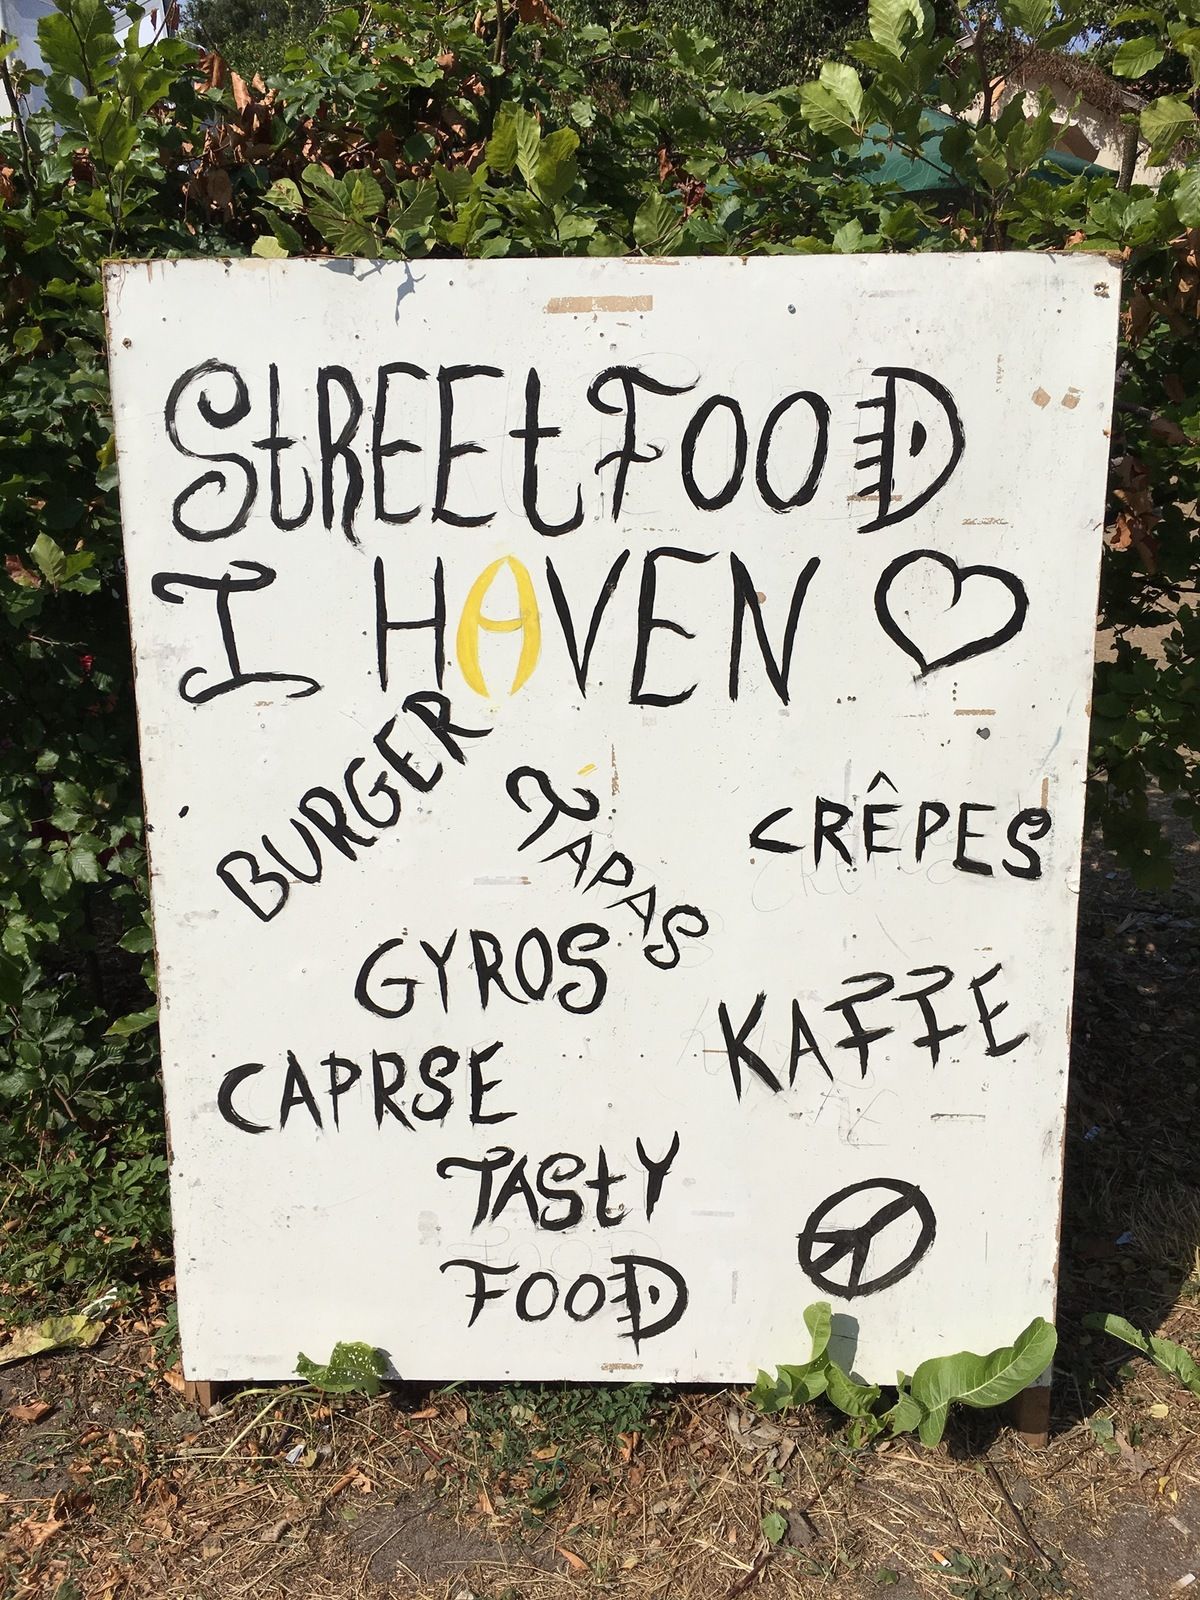 StREEtFOOD
I HAVEN
BURGER
TAPAS
CRÊPES
GYROS
KAFFE
CAPRSE
TAStY
FOOD